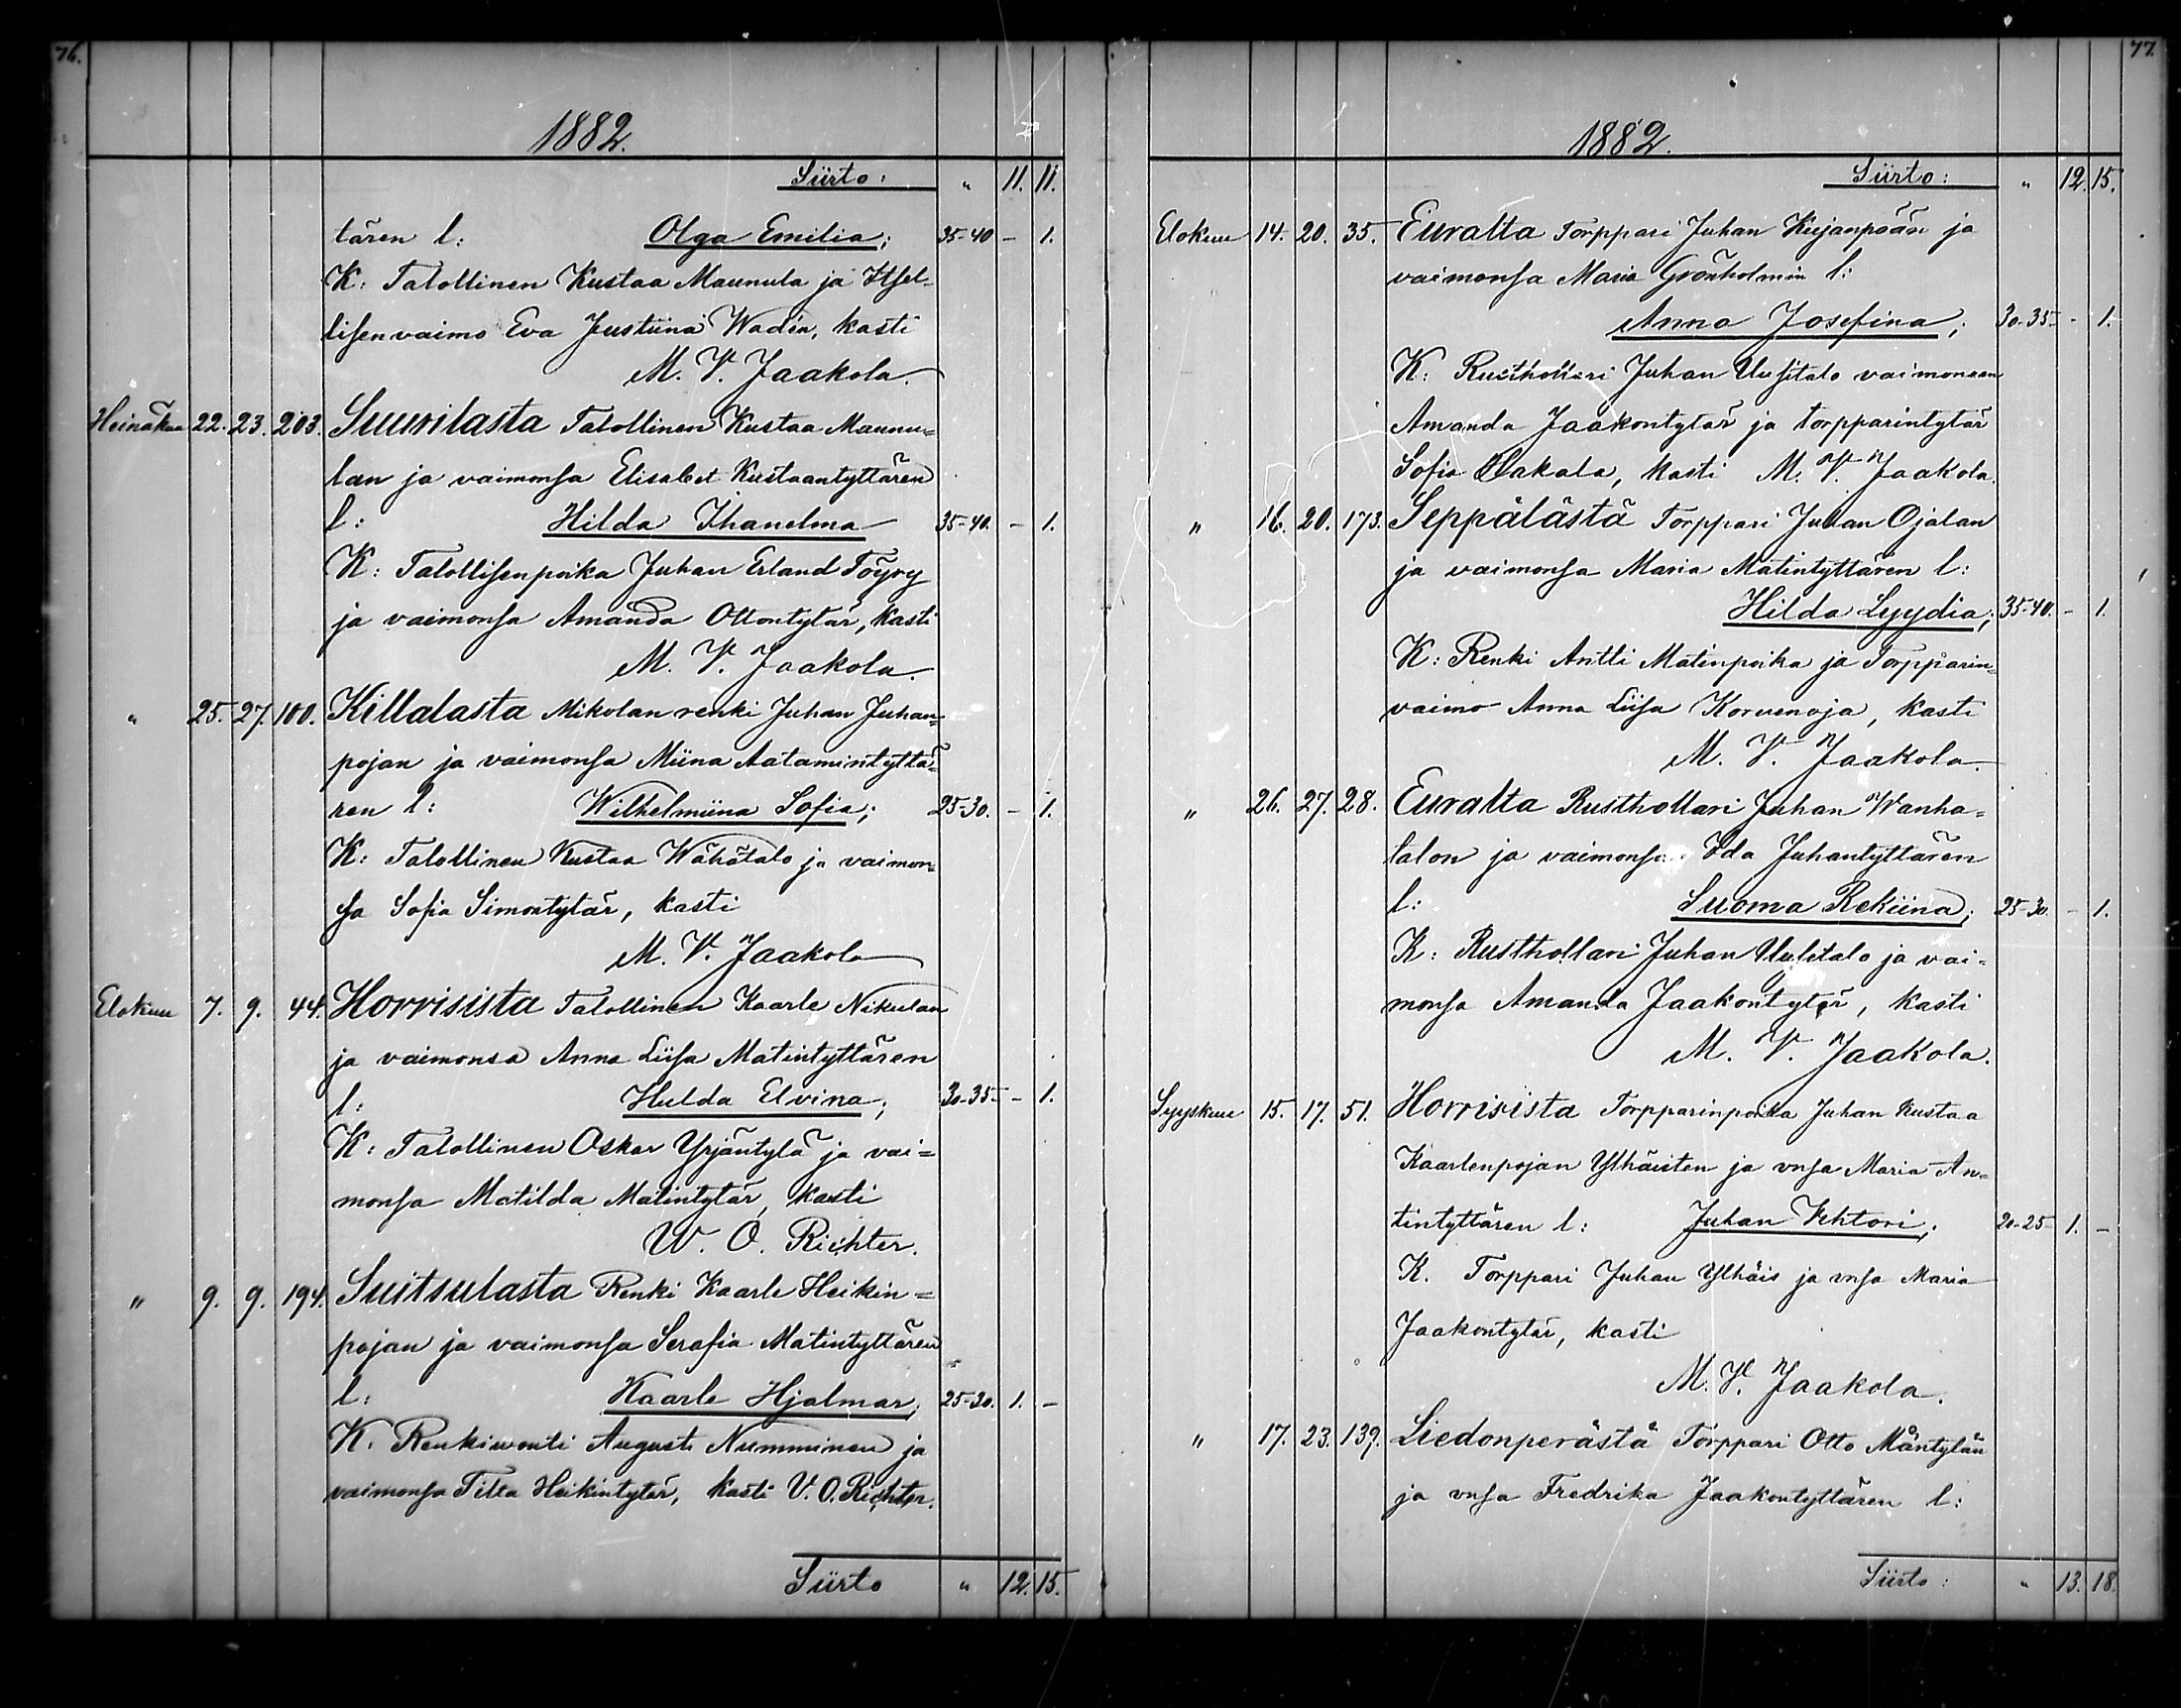 76.
1882.
Siirto: " 11. 11.
tären l: Olga Emilia; 35-40 - 1.
K: Talollinen Kustaa Maunula ja Itsel-
lisenvaimo Eva Justiina Wadén, kasti
M. V. Jaakola.
Heinäkuu 22. 23. 203. Suurilasta Talollinen Kustaa Maunu-
lan ja vaimonsa Elisabet Kustaantyttären
l: Hilda Ihanelma 35-40. - 1.
K: Talollisenpoika Juhan Erland Töyry
ja vaimonsa Amanda Ottontytär, kasti
M. V. Jaakola.
" 25. 27. 100. Killalasta Mikolan renki Juhan Juhan-
pojan ja vaimonsa Miina Aatamintyttä-
ren l: Wilhelmiina Sofia; 25-30. - 1.
K: Talollinen Kustaa Wähätalo ja vaimon-
sa Sofia Simontytär, kasti
M. V. Jaakola
Elokuu 7. 9. 44. Horrisista Talollinen Kaarle Nikulan
ja vaimonsa Anna Liisa Matintyttären
l: Hulda Elvina; 30-35- - 1.
K: Talollinen Oskar Yrjäntylä ja vai=
monsa Matilda Matintytär, kasti
W. O. Richter.
" 9. 9. 194. Suitsulasta Renki Kaarle Heikin=
pojan ja vaimonsa Serafia Matintyttären
l: Kaarle Hjalmar; 25-30. 1. -
K. Renkivouti August Numminen ja
vaimonsa Tilta Heikintytär, kasti V. O. Richter.
Siirto " 12. 15.
77.
1882.
Siirto: " 12. 15.
Elokuu 14. 20. 35. Euralta Torppari Juhan Kujanpään ja
vaimonsa Maria Grönholmin l:
Anna Josefina; 30-35- - 1.
K: Rusthollari Juhan Uusitalo vaimoneen
Amanda Jaakontytär ja torpparintytär
Sofia Olakala, kasti M. V. Jaakola.
" 16. 20. 173. Seppälästä Torppari Juhan Ojalan
ja vaimonsa Maria Matintyttären l:
Hilda Lyydia; 35-40. - 1.
K: Renki Antti Matinpoika ja Torpparin-
vaimo Anna Liisa Korvenoja, kasti
M. V. Jaakola.
" 26. 27. 28. Euralta Rusthollari Juhan Wanha-
talon ja vaimonsa Ida Juhantyttären
l: Suoma Rekiina; 25-30. - 1.
K: Rusthollari Juhan Uusitalo ja vai-
monsa Amanda Jaakontytär, kasti
M. V. Jaakola.
Syyskuu 15. 17. 51. Horrisista Torpparinpoika Juhan Kustaa
Kaarlenpojan Ylhäisten ja vnsa Maria An-
tintyttären l: Juhan Vihtori; 20-25- 1. -
K. Torppari Juhan Ylhäis ja vnsa Maria
Jaakontytär, kasti
M. V. Jaakola.
" 17. 23. 139. Liedonperästä Torppari Otto Mäntylän
ja vnsa Fredrika Jaakontyttären l:
Siirto: " 13. 18.